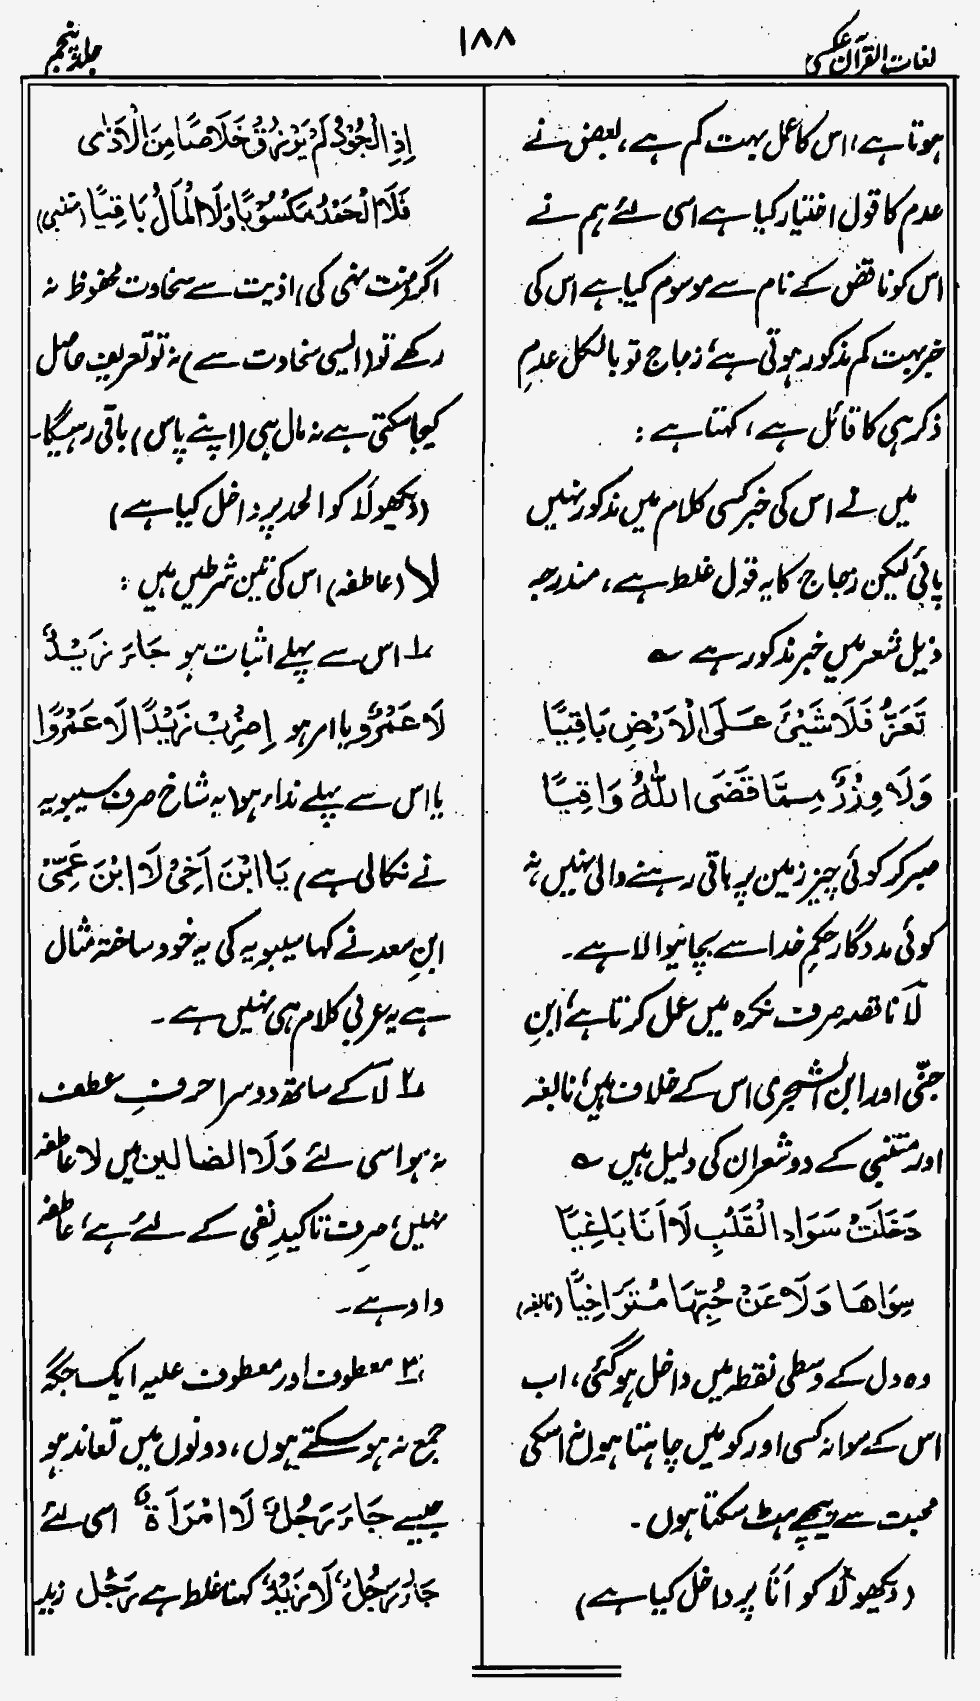 لغات القرآن عکسی
۱۸۸
جلد پنجم
ہوتا ہے، اس کا عمل بہت کم ہے، بعض نے
عدم کا قول اختیار کیا ہے اسی لئے ہم نے
اس کو ناقص کے نام سے موسوم کیا ہے اس کی
خبر بہت کم مذکور ہوتی ہے، زجاج تو بالکل عدمِ
ذکر ہی کا قائل ہے، کہتا ہے :
میں نے اس کی خبر کسی کلام میں مذکور نہیں
پائی لیکن زجاج کا یہ قول غلط ہے، مندرجہ
ذیل شعر میں خبر مذکور ہے ؎
تَعَزَّ فَلَا شَيْئَ عَلَى الْاَرْضِ بَاقِيًا
وَلَا وِزْرٌ مِمَّا قَضَى اللّٰهُ وَاقِيًا
صبر کر کوئی چیز زمین پر باقی رہنے والی نہیں نہ
کوئی مددگار حکمِ خدا سے بچانیوالا ہے۔
لَا ناقصہ صرف نکرہ میں عمل کرتا ہے، ابنِ
جنّی اور ابن الشجری اس کے خلاف ہیں، نابغہ
اور متنبی کے دو شعر ان کی دلیل ہیں ؎
دَخَلَتْ سَوَادَ الْقَلْبِ لَا اَنَا بَاغِيًا
سِوَاهَا وَلَا عَنْ حُبِّهَا مُتَرَاخِيًا (نابغہ)
وہ دل کے وسطی نقطہ میں داخل ہو گئی، اب
اس کے سوا نہ کسی اور کو میں چاہتا ہوں نہ اسکی
محبت سے پیچھے ہٹ سکتا ہوں۔
(دیکھو لَا کو اَنَا پر داخل کیا ہے)
اِذِ الْجُوْدُ لَمْ يُرْزَقْ خَلَاصًا مِنَ الْاَذٰى
فَلَا الْحَمْدُ مَكْسُوْبًا وَلَا الْمَالُ بَاقِيًا (متنبی)
اگر منت نہی کی، اذیت سے سخاوت محفوظ نہ
رکھے تو (ایسی سخاوت سے) نہ تو تعریف حاصل
کیجا سکتی ہے نہ مال ہی (اپنے پاس) باقی رہیگا۔
(دیکھو لَا کو الحمد پر داخل کیا ہے)
لا (عاطفہ) اس کی تین شرطیں ہیں :
۱؎ اس سے پہلے اثبات ہو جَاءَ زَيْدٌ
لَا عَمْرٌو یا امر ہو اِضْرِبْ زَيْدًا لَا عَمْرًوا
یا اس سے پہلے نداء ہو (یہ شاخ صرف سیبویہ
نے نکالی ہے) يَا ابْنَ اَخِيْ لَا ابْنَ عَمِّيْ
ابنِ سعد نے کہا سیبویہ کی یہ خود ساختہ مثال
ہے یہ عربی کلام ہی نہیں ہے۔
۲؎ لَا کے ساتھ دوسرا حرفِ عطف
نہ ہو اسی لئے وَلَا الضالین میں لا عاطفہ
نہیں، صرف تاکیدِ نفی کے لئے ہے، عاطفہ
واو ہے۔
۳؎ معطوف اور معطوف علیہ ایک جگہ
جمع نہ ہو سکتے ہوں، دونوں میں تعاند ہو
جیسے جَاءَ رَجُلٌ لَا امْرَأَةٌ اسی لئے
جَاءَ رَجُلٌ لَا زَيْدٌ کہنا غلط ہے رَجُل زید